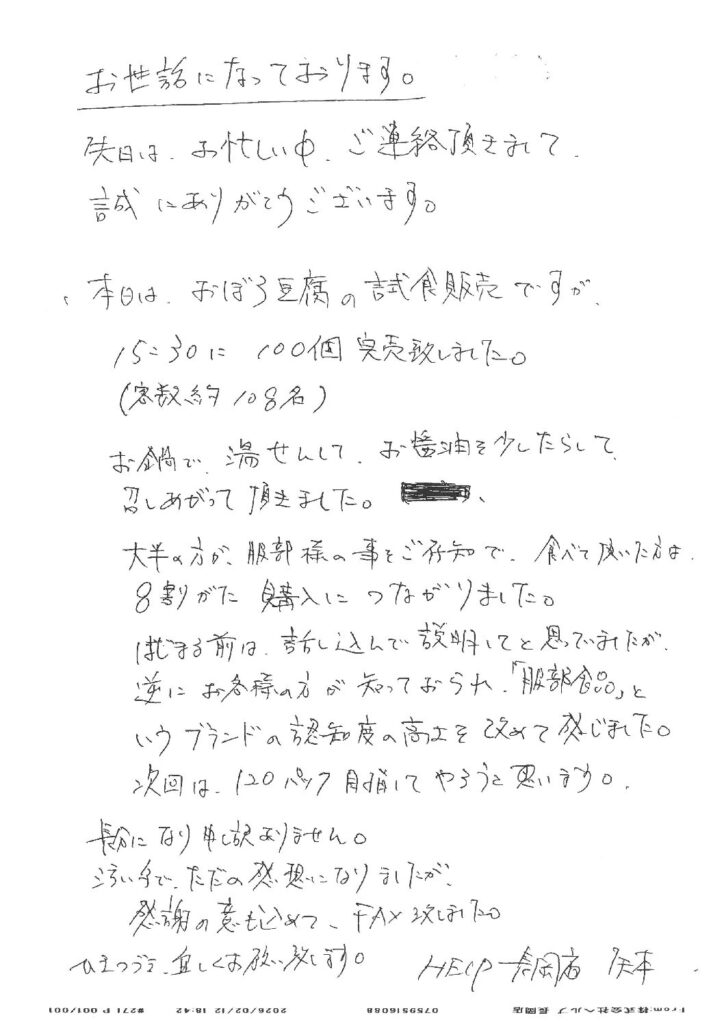 お世話になっております。
先日は、お忙しい中、ご連絡頂きまして、
誠にありがとうございます。
本日は、おぼろ豆腐の試食販売ですが、
15:30に 100個 完売致しました。
(客数約108名)
お鍋で、湯せんして、お醤油を少したらして
召しあがって頂きました。
大半の方が、服部様の事をご存知で、食べて頂いた方は、
8割がた 購入に つながりました。
はじまる前は、話し込んで説明してと思っていましたが、
逆に お客様の方が 知っておられ、「服部食品」と
いうブランドの認知度の高さを 改めて感じました。
次回は、120パック 目指して やろうと思います。
長文になり申し訳ありません。
汚い字で、ただの感想になりましたが、
感謝の意も込めて、FAX致しました。
ひきつづき、宜しくお願い致します。 HELP 長岡店 矢本
From:株式会社ヘルプ 長岡店 0759516088 2026/02/12 18:42 #271 P.001/001